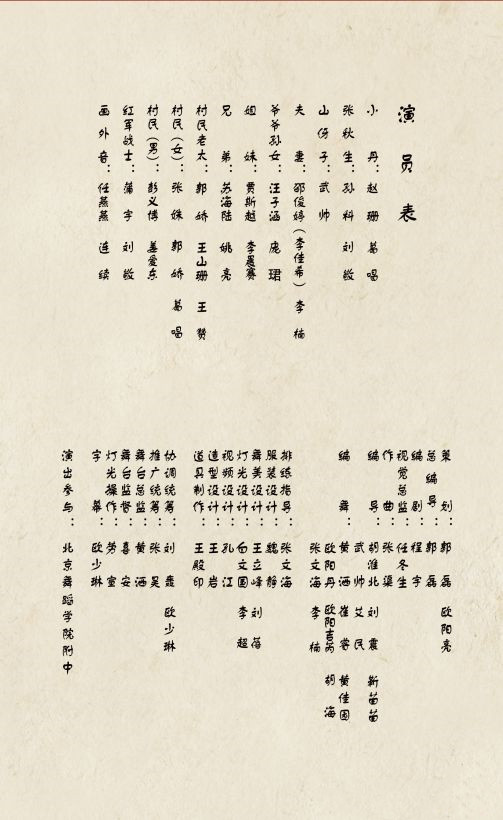 演员表
小丹：赵珊 葛唱
张秋生：孙科 刘敏
山伢子：武帅
夫妻：邵俊婷（李佳希） 李楠
爷爷孙女：汪子涵 庞珺
姐妹：黄斯越 李晨赛
兄弟：苏海陆 姚亮
村民老太：郭娇 王山珊 王赞
村民（女）：张姝 郭娇 葛唱
村民（男）：彭义博 姜爱东
红军战士：蒲宇 刘敏
画外音：任燕燕 连续
策划：郭磊 欧阳亮
总编导：郭磊
编剧：程宇
视觉总监：任冬生
作曲：张渠
编导：胡淮北 刘震 靳苗苗
武帅 艾民
编舞：黄洒 崔蓉 黄佳园
欧阳丹 欧阳吉芮 胡海
张文海 李楠
排练指导：张文海
服装设计：魏静
舞美设计：王立峰 刘蓓
灯光设计：白文国 李超
视频设计：孔江
造型设计：王岩
道具制作：王殿印
协调统筹：刘 欧少琳
推广统筹：张昊
舞台总监：黄洒
舞台监督：喜安
灯光操作：劳宣
字幕：欧少琳
演出参与：北京舞蹈学院附中